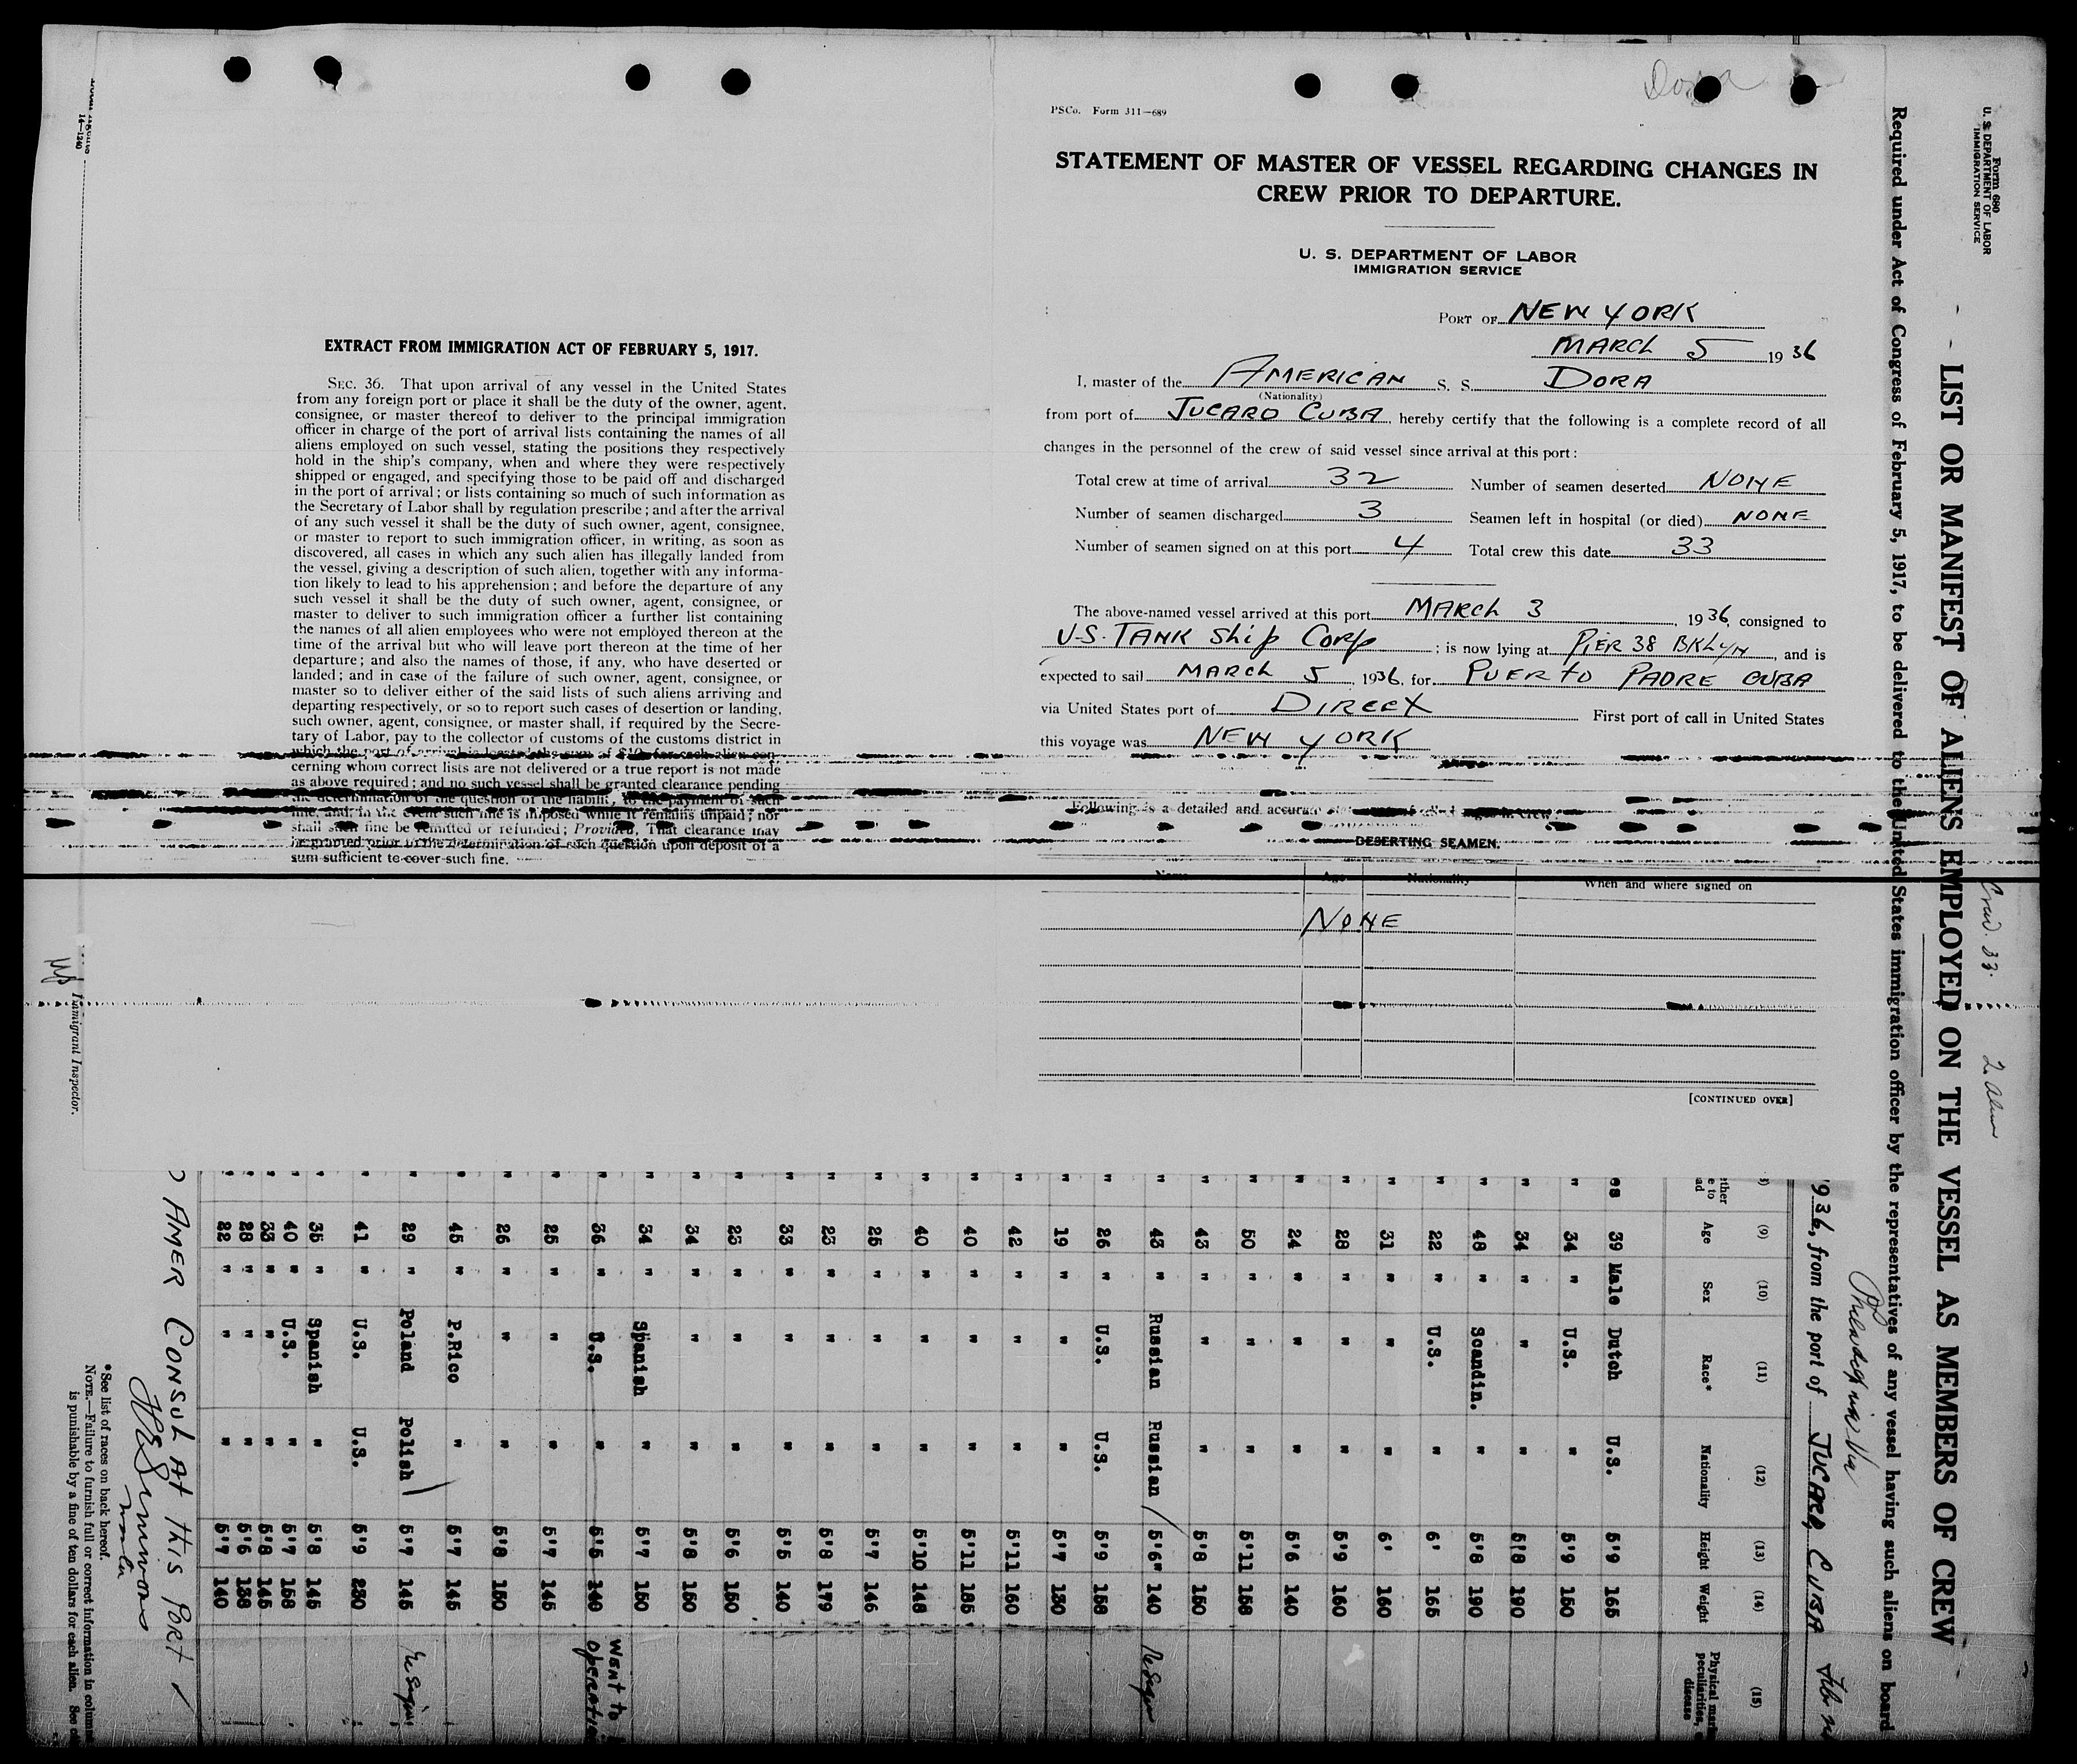 Dora
PSCo. Form 311—689
STATEMENT OF MASTER OF VESSEL REGARDING CHANGES IN
CREW PRIOR TO DEPARTURE.
U. S. DEPARTMENT OF LABOR
IMMIGRATION SERVICE
PORT OF NEW YORK
MARCH 5 1936
I, master of the AMERICAN S. S. DORA
(Nationality)
from port of JUCARO CUBA, hereby certify that the following is a complete record of all
changes in the personnel of the crew of said vessel since arrival at this port:
Total crew at time of arrival 32 Number of seamen deserted NONE
Number of seamen discharged 3 Seamen left in hospital (or died) NONE
Number of seamen signed on at this port 4 Total crew this date 33
The above-named vessel arrived at this port MARCH 3, 1936, consigned to
U-S. TANK Ship Corp; is now lying at PIER 38 BKLYN, and is
expected to sail MARCH 5, 1936, for PUERTO PADRE CUBA
via United States port of DIRECT First port of call in United States
this voyage was NEW YORK
Following is a detailed and accurate
DESERTING SEAMEN.
Name Age Nationality When and where signed on
NONE
[CONTINUED OVER]
EXTRACT FROM IMMIGRATION ACT OF FEBRUARY 5, 1917.
SEC. 36. That upon arrival of any vessel in the United States
from any foreign port or place it shall be the duty of the owner, agent,
consignee, or master thereof to deliver to the principal immigration
officer in charge of the port of arrival lists containing the names of all
aliens employed on such vessel, stating the positions they respectively
hold in the ship's company, when and where they were respectively
shipped or engaged, and specifying those to be paid off and discharged
in the port of arrival; or lists containing so much of such information as
the Secretary of Labor shall by regulation prescribe; and after the arrival
of any such vessel it shall be the duty of such owner, agent, consignee,
or master to report to such immigration officer, in writing, as soon as
discovered, all cases in which any such alien has illegally landed from
the vessel, giving a description of such alien, together with any informa-
tion likely to lead to his apprehension; and before the departure of any
such vessel it shall be the duty of such owner, agent, consignee, or
master to deliver to such immigration officer a further list containing
the names of all alien employees who were not employed thereon at the
time of the arrival but who will leave port thereon at the time of her
departure; and also the names of those, if any, who have deserted or
landed; and in case of the failure of such owner, agent, consignee, or
master so to deliver either of the said lists of such aliens arriving and
departing respectively, or so to report such cases of desertion or landing,
such owner, agent, consignee, or master shall, if required by the Secre-
tary of Labor, pay to the collector of customs of the customs district in
which the port of arrival is located the sum of $10 for each alien con-
cerning whom correct lists are not delivered or a true report is not made
as above required; and no such vessel shall be granted clearance pending
the determination of the question of the liability to the payment of such
fine, and, in the event such fine is imposed while it remains unpaid; nor
shall such fine be remitted or refunded; Provided, That clearance may
be granted prior to the determination of such question upon deposit of a
sum sufficient to cover such fine.
Form 680
U. S. DEPARTMENT OF LABOR
IMMIGRATION SERVICE
Crew. 33. 2 alien
LIST OR MANIFEST OF ALIENS EMPLOYED ON THE VESSEL AS MEMBERS OF CREW
Required under Act of Congress of February 5, 1917, to be delivered to the United States immigration officer by the representatives of any vessel having such aliens on board
1936, from the port of JUCARO, CUBA
(9) (10) (11) (12) (13) (14) (15)
Age Sex Race* Nationality Height Weight Physical
peculiarities,
disease
39 Male Dutch U.S. 5'9 165
" 34 " U.S. " 5'9 150
" 34 " " " 5'8 190
" 48 " Scandin. " 5'8 190
" 22 " U.S. " 6' 165
" 31 " " " 6' 160
" 28 " " " 5'9 160
" 24 " " " 5'6 140
" 50 " " " 5'11 158
" 43 " " " 5'8 150
" 43 " Russian Russian 5'6" 140
" 26 " U.S. U.S. 5'9 158
" 19 " " " 5'7 130
" 42 " " " 5'11 160
" 40 " " " 5'11 185
" 40 " " " 5'10 148
" 25 " " " 5'7 146
" 23 " " " 5'8 179
" 33 " " " 5'5 140
" 23 " " " 5'6 150
" 34 " " " 5'8 150
" 34 " Spanish " 5'7 150 WENT to
" 36 " U.S. " 5'5 140
" 25 " " " 5'7 145
" 26 " " " 5'8 150
" 45 " P.Rico " 5'7 145
" 29 " Poland Polish 5'7 145
" 41 " U.S. U.S. 5'9 250
" 35 " Spanish " 5'8 145
" 40 " U.S. " 5'7 158
" 33 " " " 5'8 145
" 28 " " " 5'6 138
" 22 " " " 5'7 140
AMER CONSUL AT this PORT
*See list of races on back hereof.
NOTE.—Failure to furnish full or correct information in
is punishable by a fine of ten dollars for each alien. See
Immigrant Inspector.
14—1240